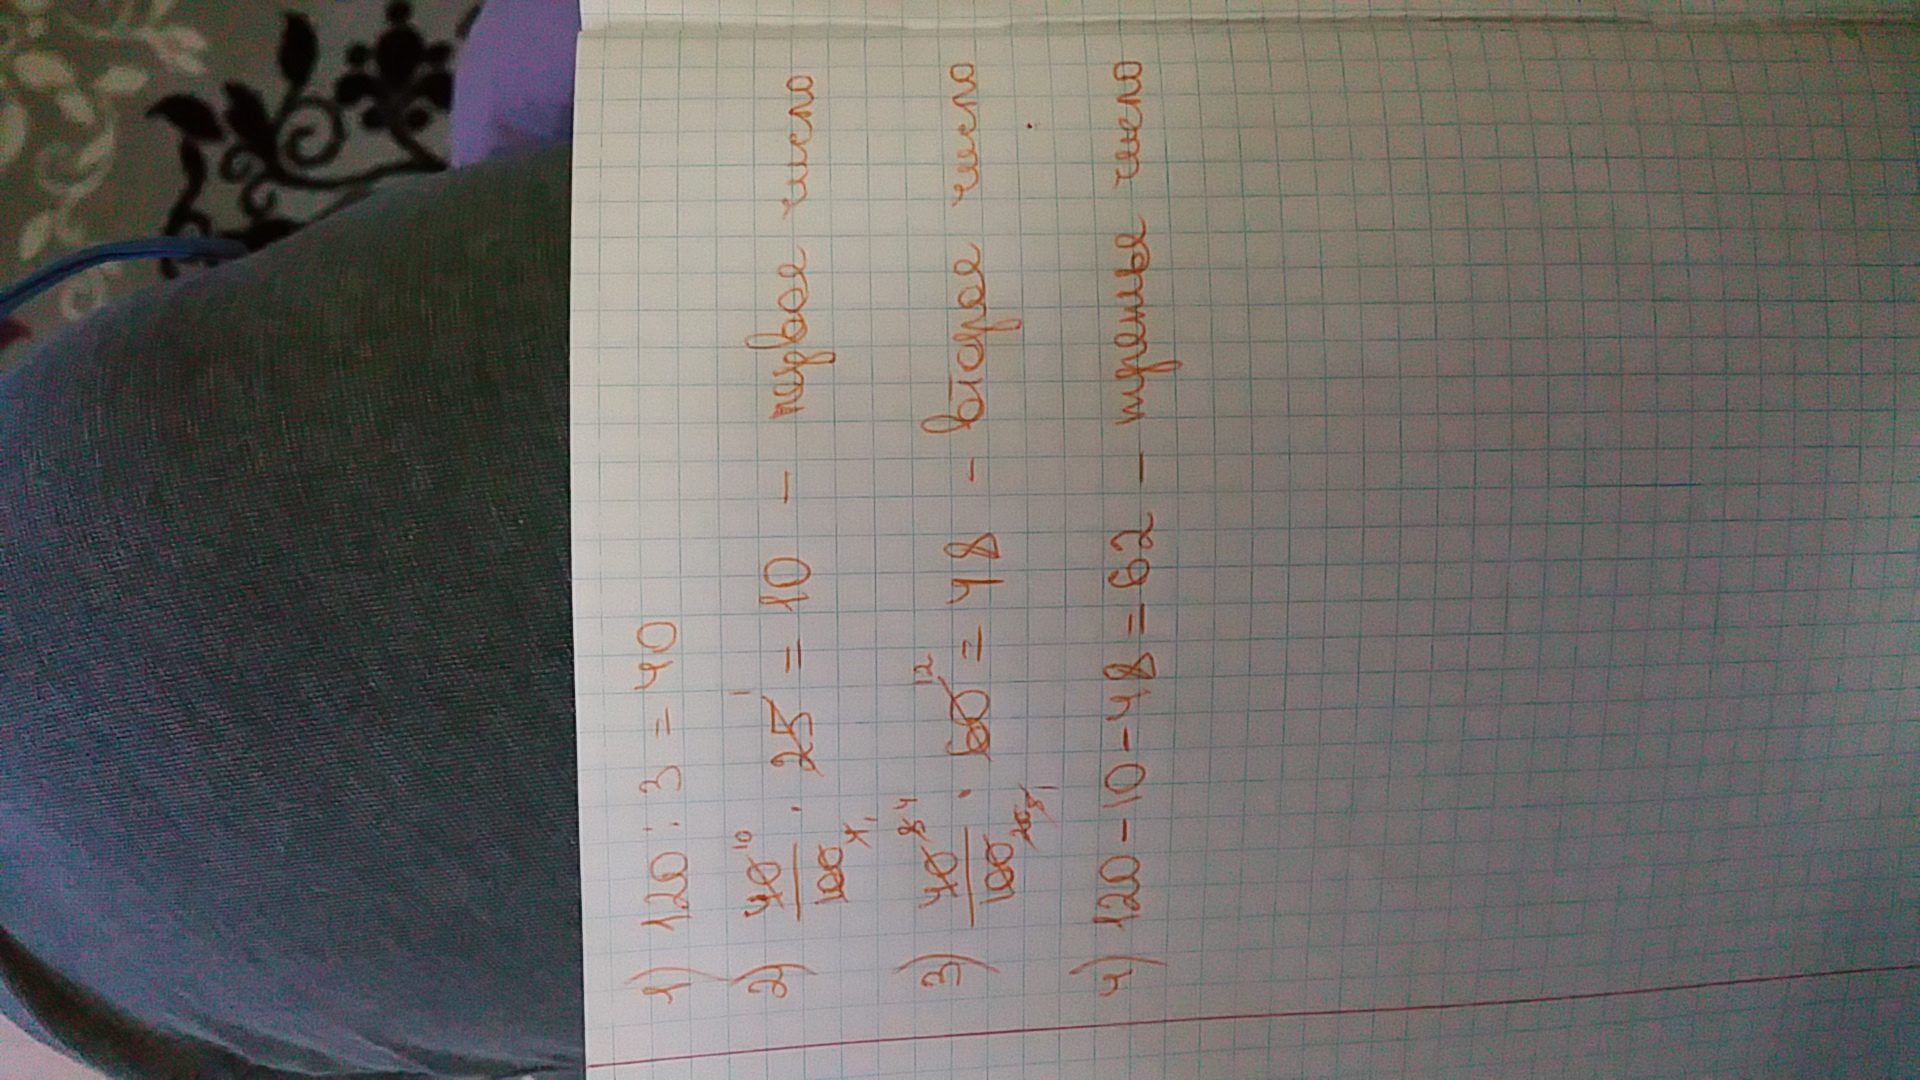 1) 120 : 3 = 40
2) 40¹⁰/100 ₄ ₁ · 25 ¹ = 10 - первое число
3) 40 ⁸ ⁴/100 ₂₀ ₅ ₁ · 60 ¹² = 48 - второе число
4) 120 - 10 - 48 = 62 - третье число